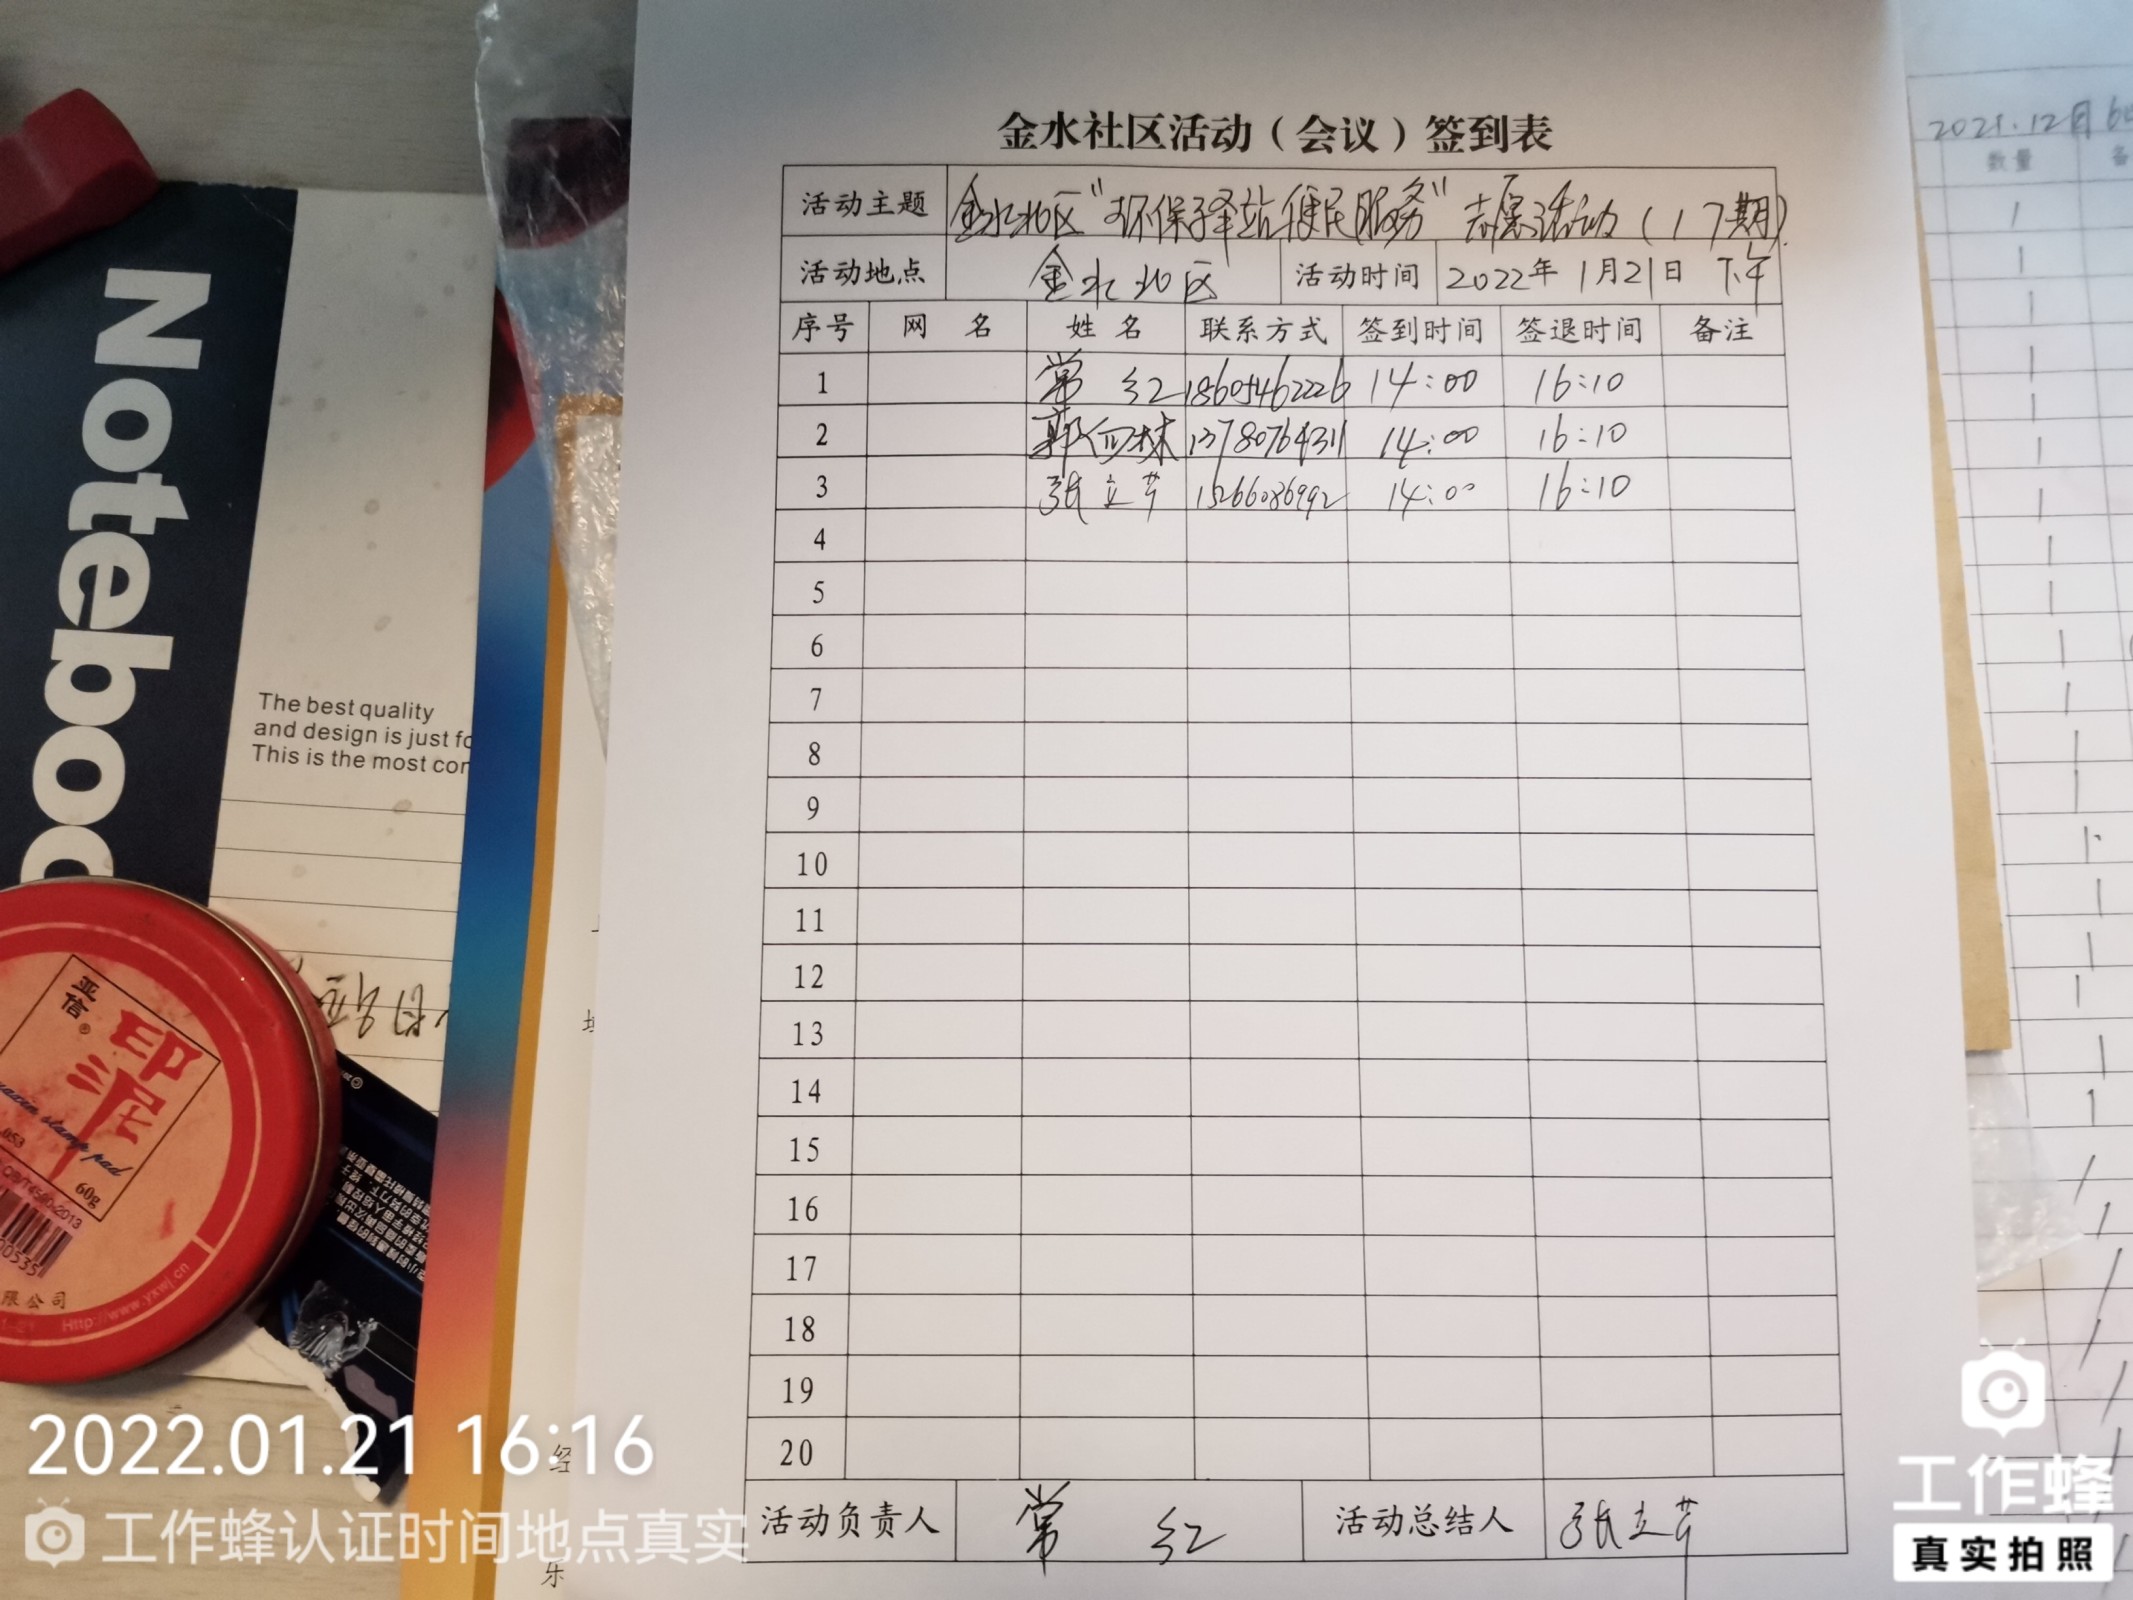 金水社区活动（会议）签到表
活动主题 金水社区"环保驿站便民服务"志愿活动(17期)
活动地点 金水社区 活动时间 2022年1月21日 下午
序号 网 名 姓 名 联系方式 签到时间 签退时间 备注
1 常 红 18605462226 14:00 16:10
2 郭 13780764311 14:00 16:10
3 张立芹 15266086992 14:00 16:10
4
5
6
7
8
9
10
11
12
13
14
15
16
17
18
19
20
活动负责人 常 红 活动总结人 张立芹
Noteboo
The best quality
and design is just fo
This is the most con
亚信®
印泥
stamp pad
053
60g
QB/T4580-2013
00535
限公司
Http://www.yxwj.cn
2021.12月
数量
2022.01.21 16:16
工作蜂认证时间地点真实
工作蜂
真实拍照